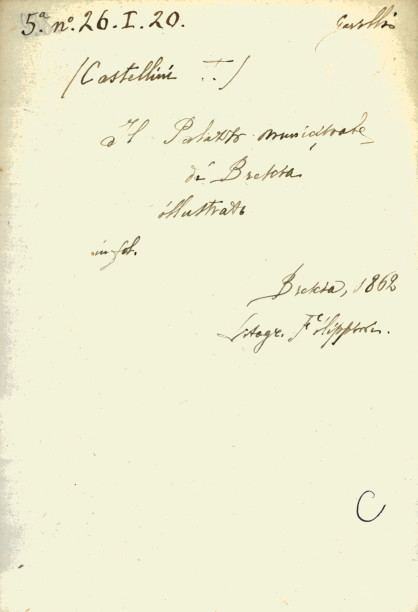 5.ª n.º 26. I. 20.
(Castellini T.)
Il Palazzo municipale
di Brescia
illustrato
in fol.
Brescia, 1862
Litogr. Filippini.
C